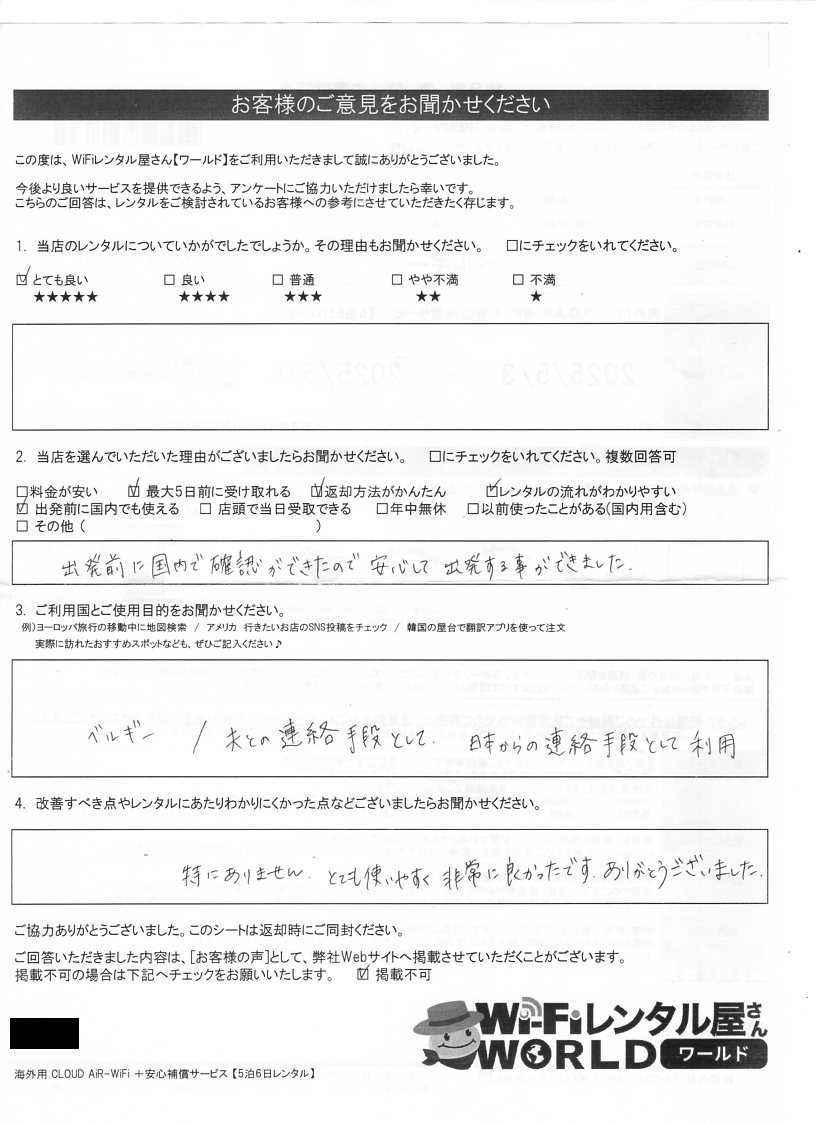 お客様のご意見をお聞かせください
この度は、WiFiレンタル屋さん【ワールド】をご利用いただきまして誠にありがとうございました。
今後より良いサービスを提供できるよう、アンケートにご協力いただけましたら幸いです。
こちらのご回答は、レンタルをご検討されているお客様への参考にさせていただきたく存じます。
1. 当店のレンタルについていかがでしたでしょうか。その理由もお聞かせください。 □にチェックをいれてください。
☑ とても良い □ 良い □ 普通 □ やや不満 □ 不満
★★★★★ ★★★★ ★★★ ★★ ★
2. 当店を選んでいただいた理由がございましたらお聞かせください。 □にチェックをいれてください。複数回答可
□料金が安い ☑ 最大5日前に受け取れる ☑返却方法がかんたん ☑レンタルの流れがわかりやすい
☑ 出発前に国内でも使える □ 店頭で当日受取できる □年中無休 □以前使ったことがある(国内用含む)
□ その他 ( )
出発前に国内で確認ができたので安心して出発する事ができました.
3. ご利用国とご使用目的をお聞かせください。
例)ヨーロッパ旅行の移動中に地図検索 / アメリカ 行きたいお店のSNS投稿をチェック / 韓国の屋台で翻訳アプリを使って注文
実際に訪れたおすすめスポットなども、ぜひご記入ください♪
ベルギー / 夫との連絡手段として. 日本からの連絡手段として利用
4. 改善すべき点やレンタルにあたりわかりにくかった点などございましたらお聞かせください。
特にありません. とても使いやすく非常に良かったです. ありがとうございました.
ご協力ありがとうございました。このシートは返却時にご同封ください。
ご回答いただきました内容は、[お客様の声]として、弊社Webサイトへ掲載させていただくことがございます。
掲載不可の場合は下記へチェックをお願いいたします。 ☑ 掲載不可
Wi-Fiレンタル屋さん
WORLD ワールド
海外用 CLOUD AiR-WiFi +安心補償サービス【5泊6日レンタル】